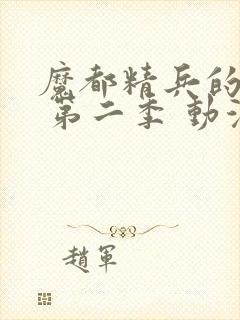 魔都精兵的
第二季 動
趙軍